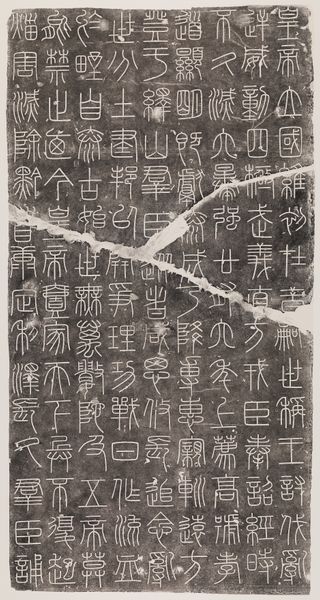 皇帝立國維初在昔嗣世稱王討伐亂
逆威動四極武義直方戎臣奉詔經時
不久滅六暴強廿有六年上薦高號孝
道顯明既獻泰成乃降專惠寴䡅遠方
登于繹山羣臣從者咸思攸長追念亂
世分土建邦以開爭理功戰日作流血
於野自泰古始世無萬數阤及五帝莫
能禁止迺今皇帝壹家天下兵不復起
災害滅除黔首康定利澤長久羣臣誦